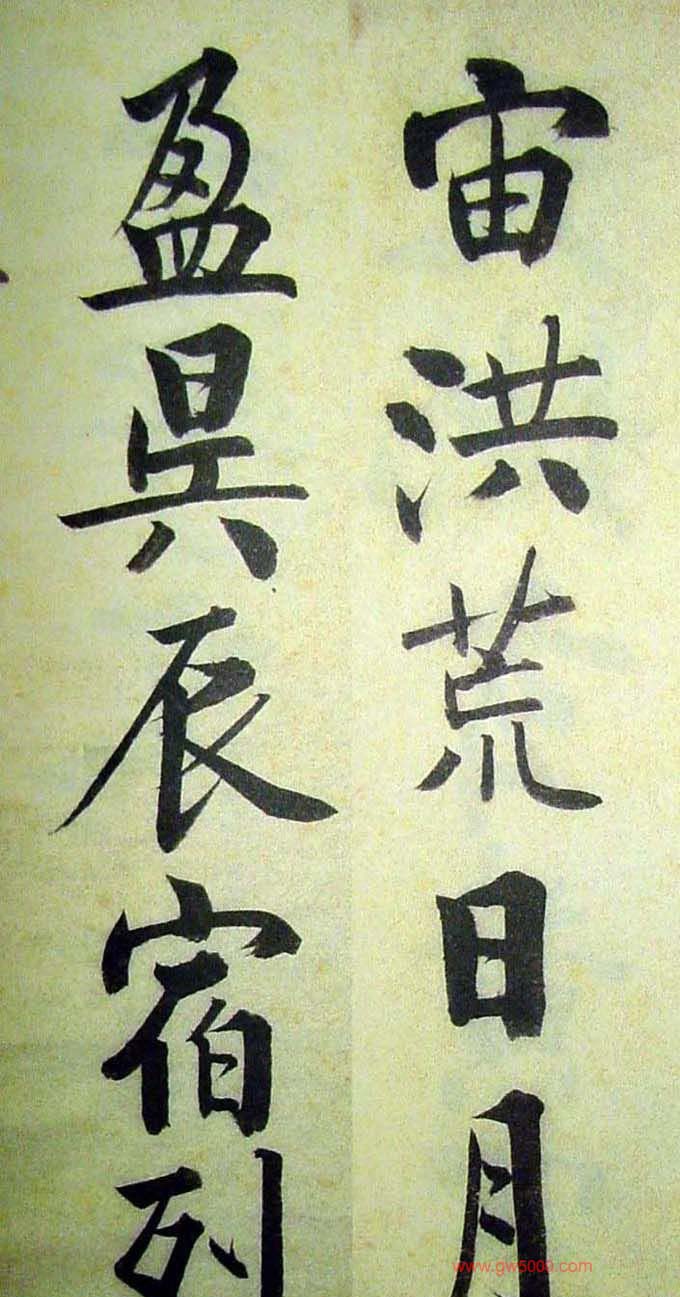 宙洪荒日月
盈昃辰宿列
www.gw5000.com